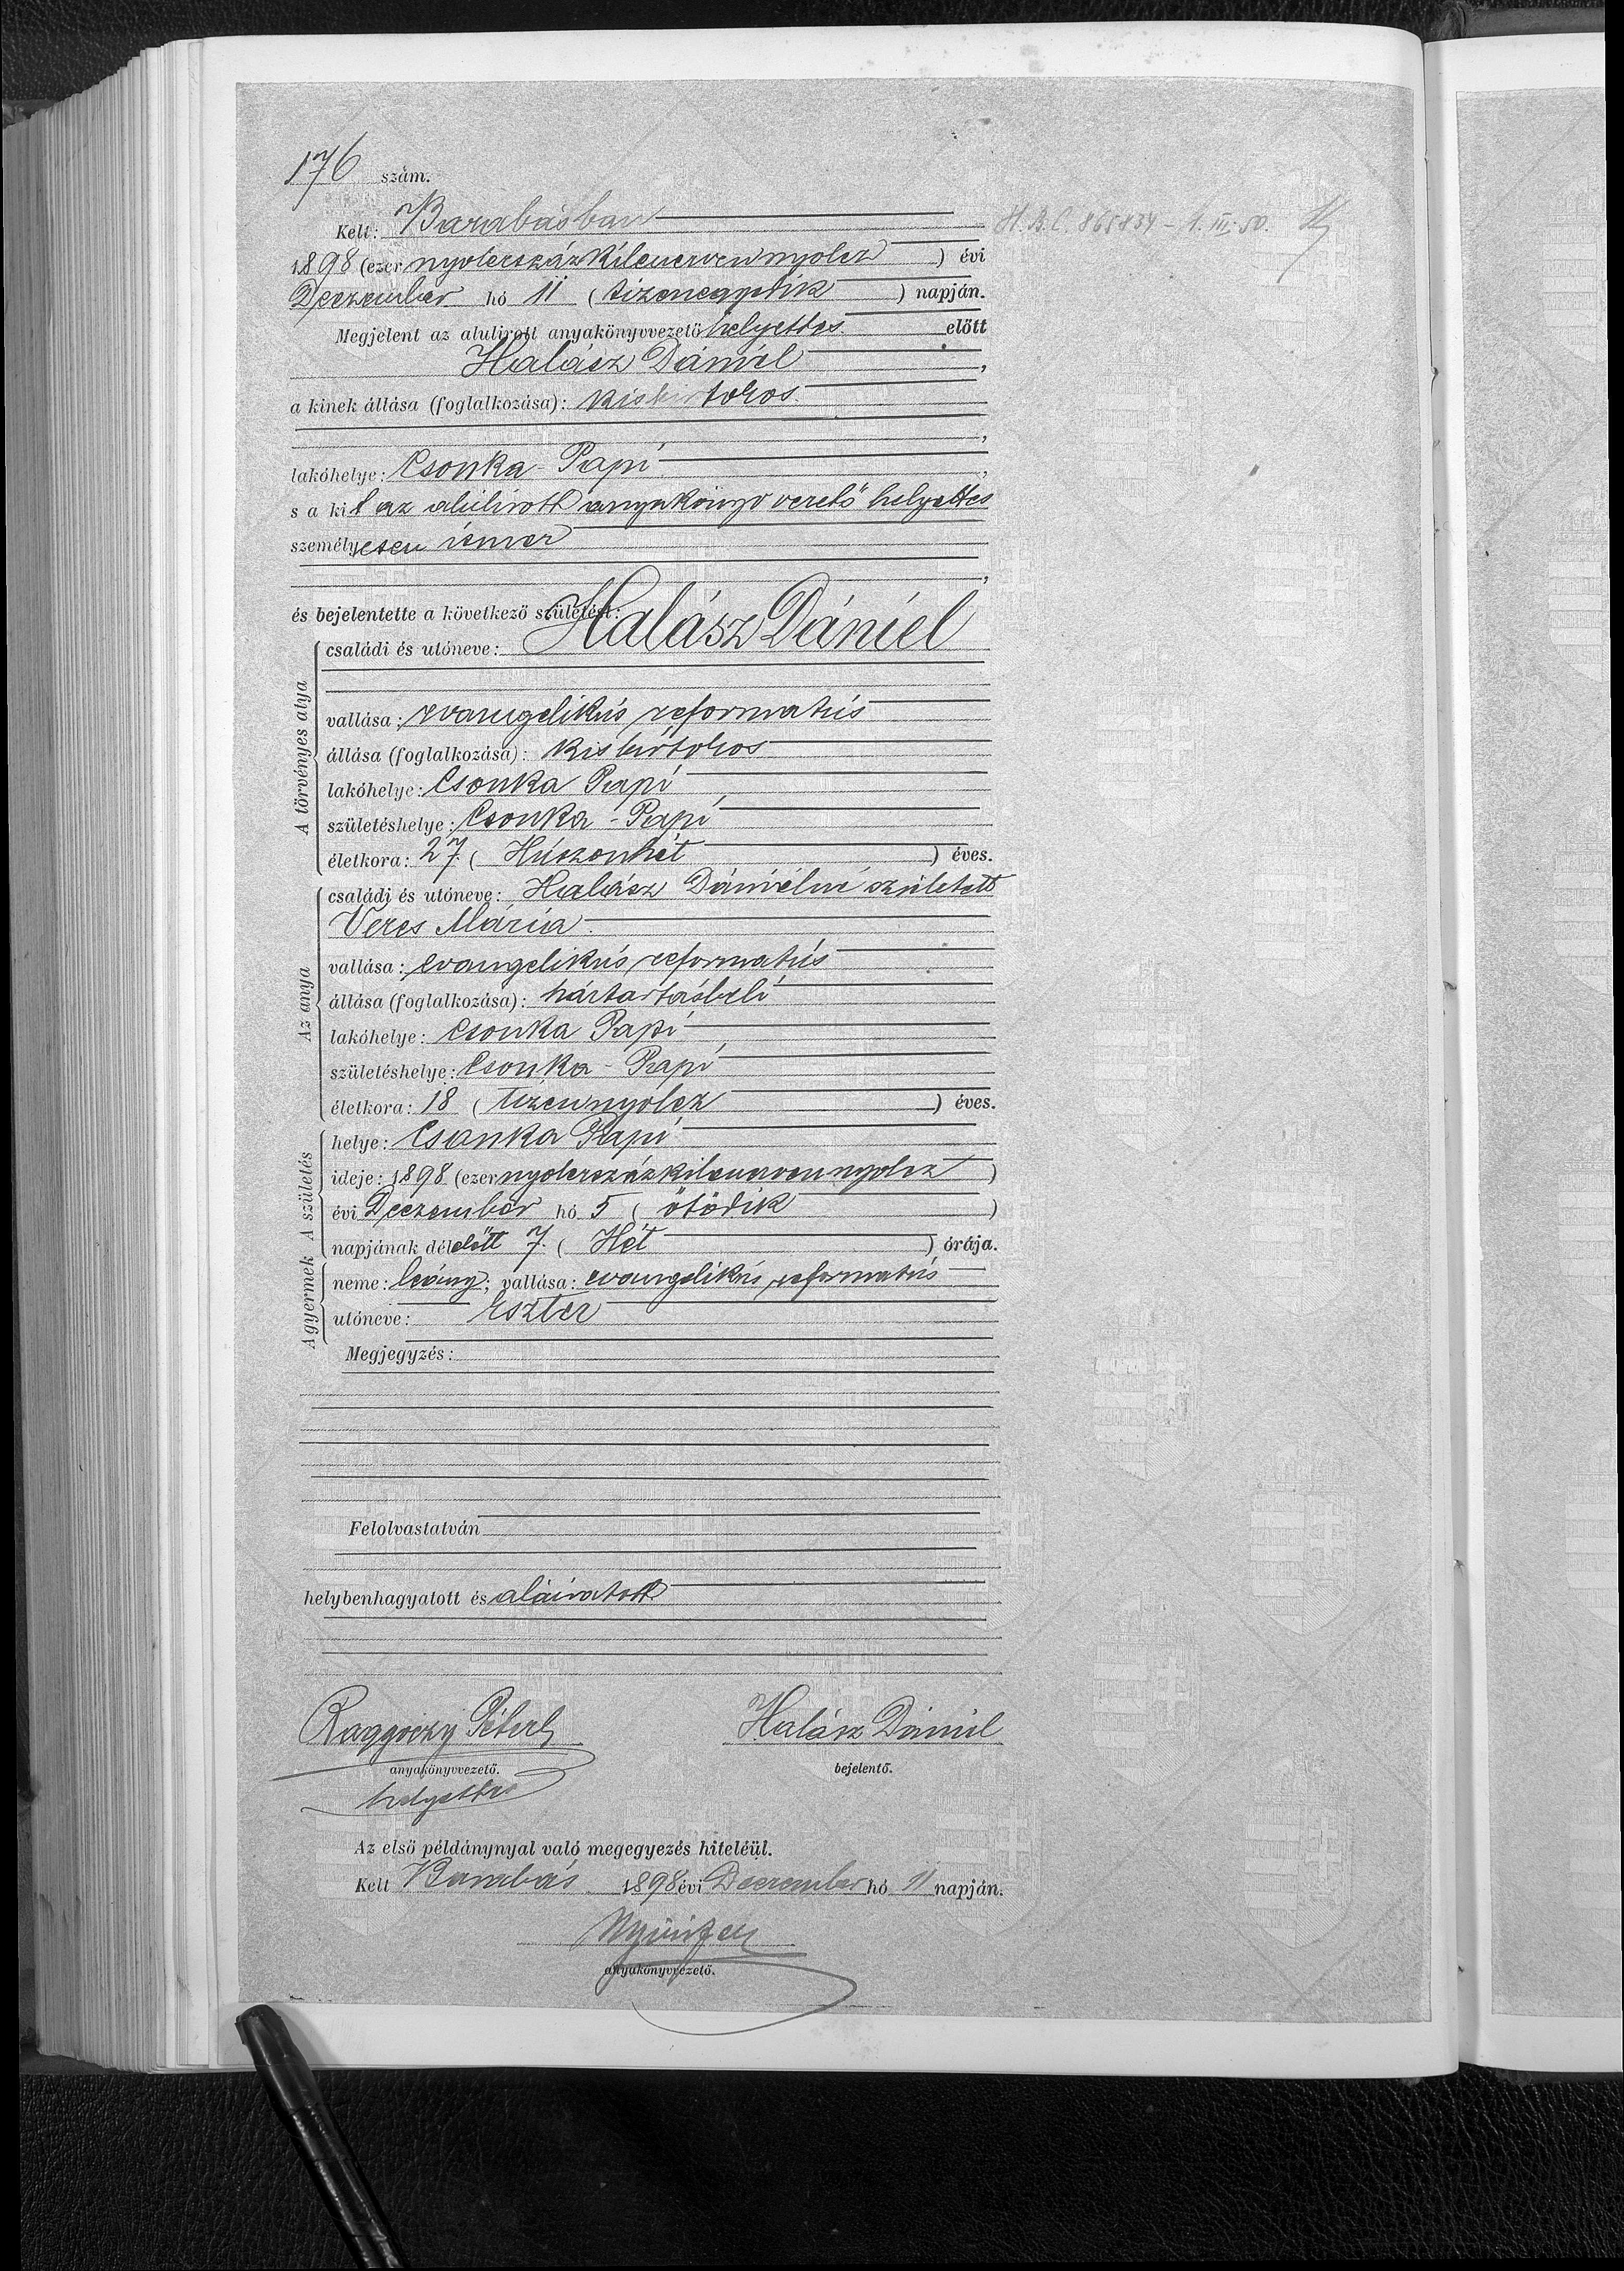 176 szám.
Kelt: Barabásban
1898 (ezernyolczszázkilenczvennyolcz) évi
Deczember hó 11 (tizenegyedik) napján.
Megjelent az alulirott anyakönyvvezető helyettes előtt
Halász Dániel,
a kinek állása (foglalkozása): kisbirtokos
lakóhelye: Csonka-Papi,
s a kit az alulirott anyakönyvvezető helyettes
személyesen ismer
és bejelentette a következő születést:
A törvényes atya
családi és utóneve: Halász Dániel
vallása: evangelikús reformatús
állása (foglalkozása): Kisbirtokos
lakóhelye: Csonka Papi
születéshelye: Csonka-Papi
életkora: 27. (Húszonhét) éves.
Az anya
családi és utóneve: Halász Dánielné született
Veres Mária
vallása: evangelikús reformatús
állása (foglalkozása): háztartásbeli
lakóhelye: Csonka Papi
születéshelye: Csonka-Papi
életkora: 18 (tizennyolcz) éves.
A születés
helye: Csonka Papi
ideje: 1898 (ezernyolczszázkilenczvennyolcz)
évi Deczember hó 5 (ötödik)
napjának délelőtt 7. (Hét) órája.
A gyermek
neme: leány; vallása: evangelikús reformatús
utóneve: Eszter
Megjegyzés:
Felolvastatván
helybenhagyatott és aláiratott
Halász Dániel
anyakönyvvezető. bejelentő.
helyettes
Az első példánynyal való megegyezés hiteléül.
Kelt Barabás 1898 évi Deczember hó 11 napján.
anyakönyvvezető.
H.B.C. 865834 - 1. III. 50.